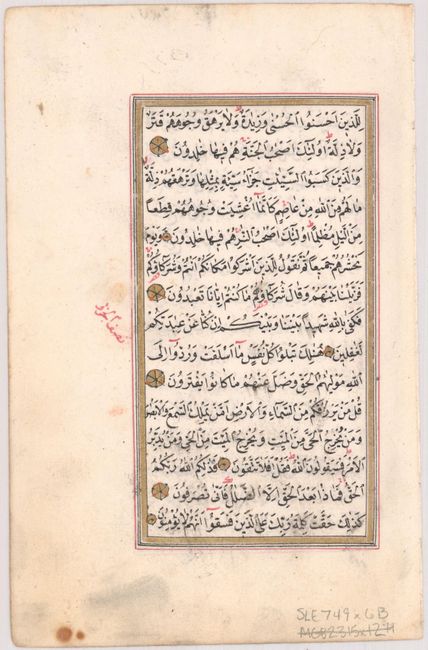 للذين احسنوا الحسنى وزيادة ولا يرهق وجوههم قتر
ولا ذلة اولئك اصحب الجنة هم فيها خلدون
والذين كسبوا السيئات جزاء سيئة بمثلها وترهقهم ذلة
ما لهم من الله من عاصم كانما اغشيت وجوههم قطعا
من اليل مظلما اولئك اصحب النار هم فيها خلدون ويوم
نحشرهم جميعا ثم نقول للذين اشركوا مكانكم انتم وشركاؤكم
فزيلنا بينهم وقال شركاؤهم ما كنتم ايانا تعبدون
فكفى بالله شهيدا بيننا وبينكم ان كنا عن عبادتكم
لغفلين هنالك تبلوا كل نفس ما اسلفت وردوا الى
الله موليهم الحق وضل عنهم ما كانوا يفترون
قل من يرزقكم من السماء والارض امن يملك السمع والابصر
ومن يخرج الحي من الميت ويخرج الميت من الحي ومن يدبر
الامر فسيقولون الله فقل افلا تتقون فذلكم الله ربكم
الحق فماذا بعد الحق الا الضلل فانى تصرفون
كذلك حقت كلمة ربك على الذين فسقوا انهم لا يؤمنون
نصف الجزء
SLE749xGB